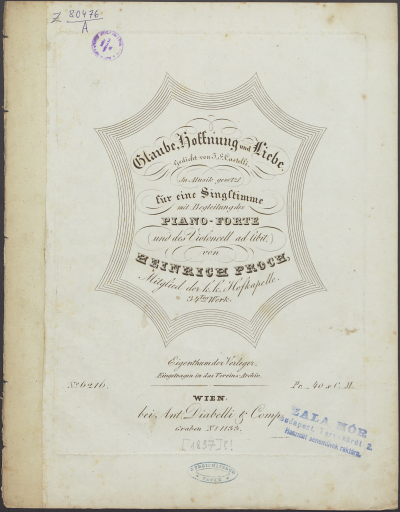 Z 80476
A
Glaube, Hoffnung und Liebe.
Gedicht von I. F. Castelli.
In Musik gesetzt
für eine Singstimme
mit Begleitung des
PIANO-FORTE
(und des Violoncell ad libit:)
von
HEINRICH PROCH,
Mitglied der k.k. Hofkapelle.
34tes Werk.
Eigenthum der Verleger.
Eingetragen in das Vereins-Archiv.
No 6216.
Pr. 40 x C. M.
WIEN,
bei Ant. Diabelli & Comp.
Graben No 1133.
[1837][!]
ZALA MÓR
Budapest,
2.